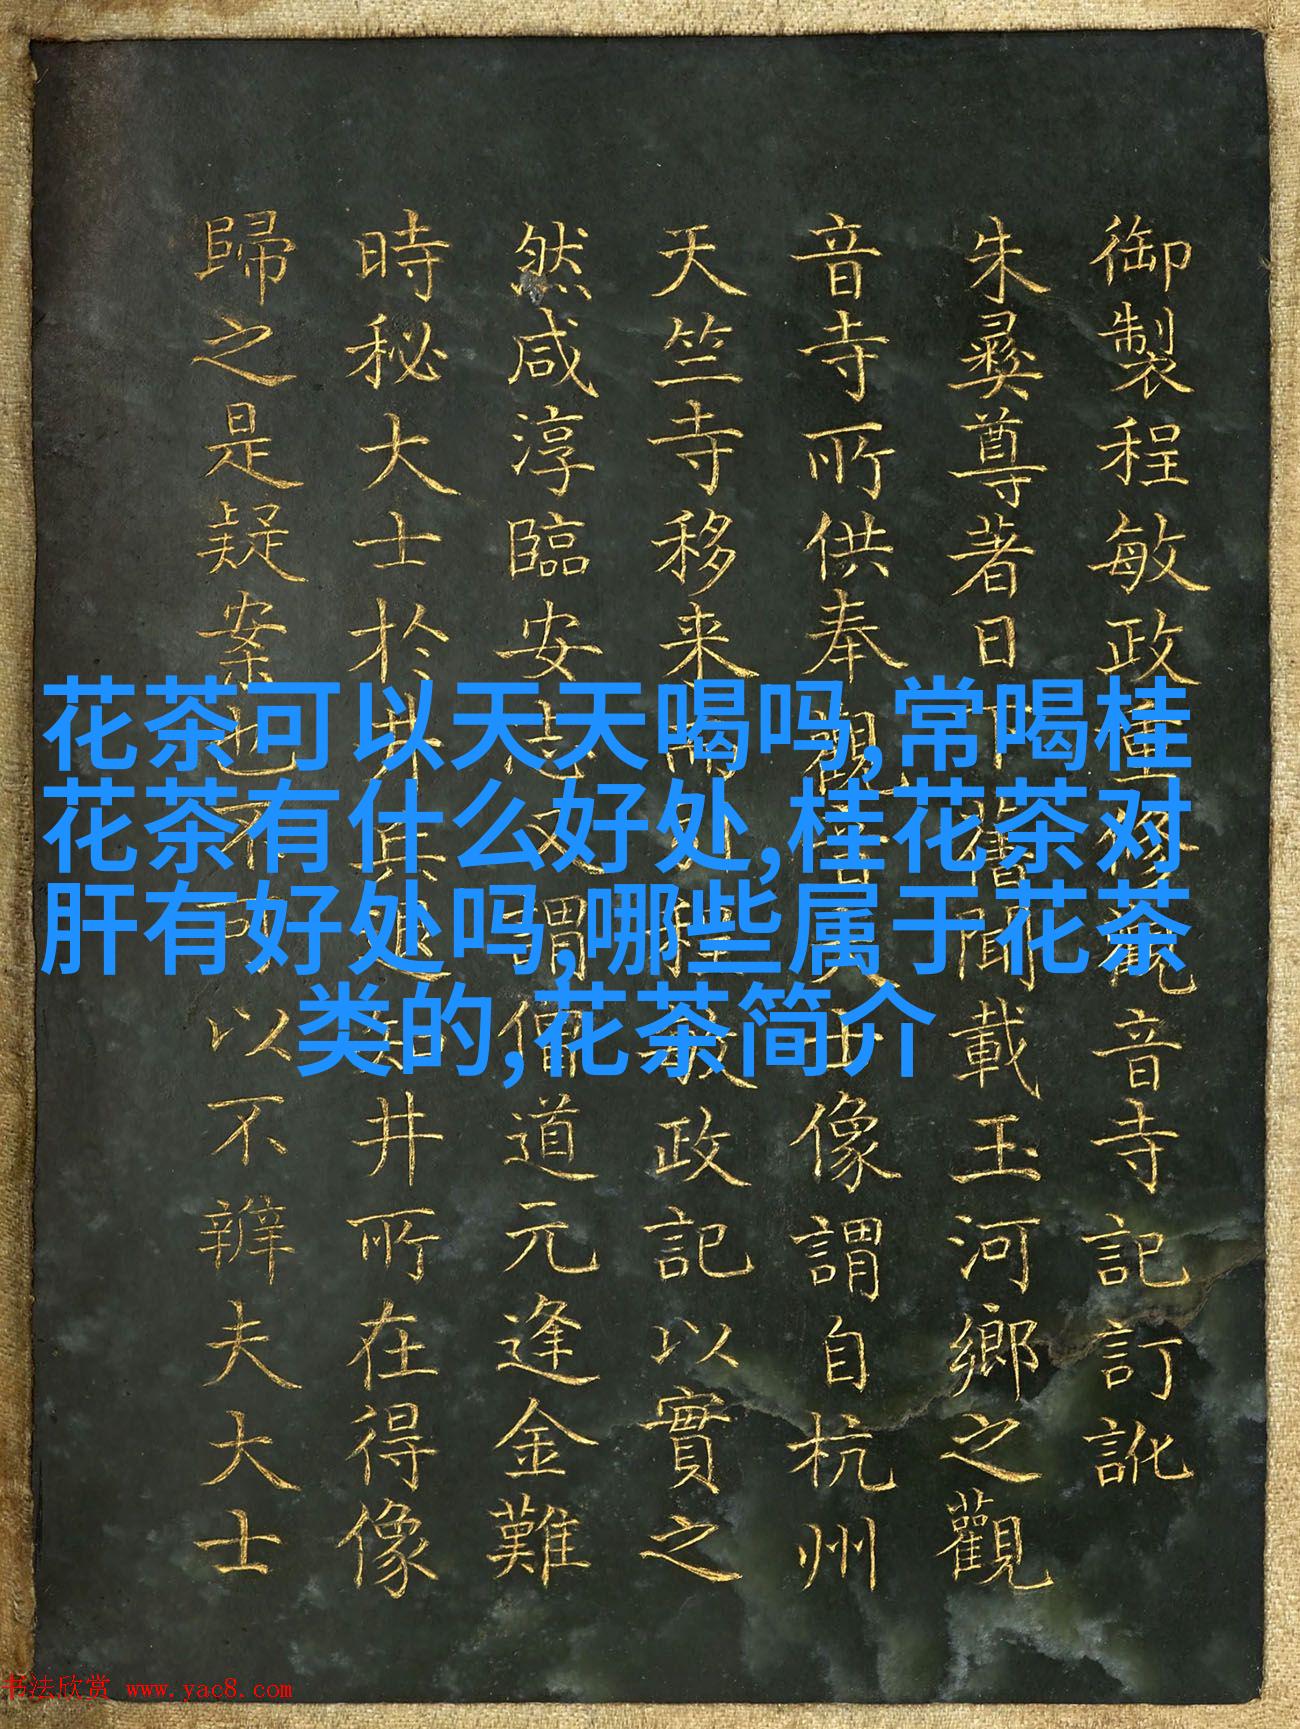 御製程敏政重修觀音寺記訂訛
朱彞尊著日下舊聞載玉河鄉之觀
音寺所供奉觀音大士像謂自杭州
天竺寺移来而引程敏政記以實之
然咸淳臨安志又謂僧道元逢金難
時秘大士於井其退出井所在得像
歸之是疑案也不可以不辨夫大士
花茶可以天天喝吗,常喝桂
花茶有什么好处,桂花茶对
肝有好处吗,哪些属于花茶
类的,花茶简介
书法欣赏 www.yac8.com